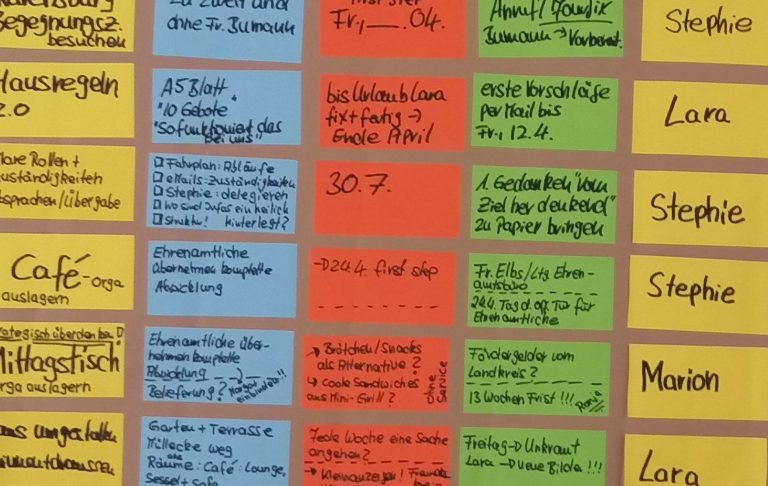 Begegnungsz.
besuchen
zu zweit und
ohne Fr. Bumann
Fr., __.04.
Anruf/
Bumann → Vorbereit.
Stephie
Hausregeln
2.0
A5 Blatt
"10 Gebote"
"So funktioniert das
bei uns"
bis Urlaub Lara
fix + fertig →
Ende April
erste Vorschläge
per Mail bis
Fr., 12.4.
Lara
klare Rollen +
Zuständigkeiten
Absprachen/Übergabe
Fahrplan: Abläufe
eMails: Zuständigkeiten
Stephie: delegieren
wo sind Infos einheitlich
Struktur! hinterlegt?
30.7.
1. Gedanken "vom
Ziel her denkend"
zu Papier bringen
Stephie
Café-orga
auslagern
Ehrenamtliche
übernehmen komplette
Abwicklung
→ 24.4. first step
Fr. Elbs/Ltg Ehren-
amtsbüro
24.4. Tag d. off. Tür für
Ehrenamtliche
Stephie
Mittagsfisch
orga auslagern
Ehrenamtliche über-
nehmen komplette
Abwicklung
Belieferung?
→ Brötchen/Snacks
als Alternative?
↳ coole Sandwiches
aus Mini-Grill?
ohne Service
Fördergelder vom
Landkreis?
13 Wochen Frist!!!
Marion
umgestalten
Garten + Terrasse
Müllecke weg
Räume: Café: Lounge,
Sessel + Sofa
Jede Woche eine Sache
angehen?
→ Kleinanzeigen!
Freitag → Unkraut
Lara → neue Bilder!!!
Lara